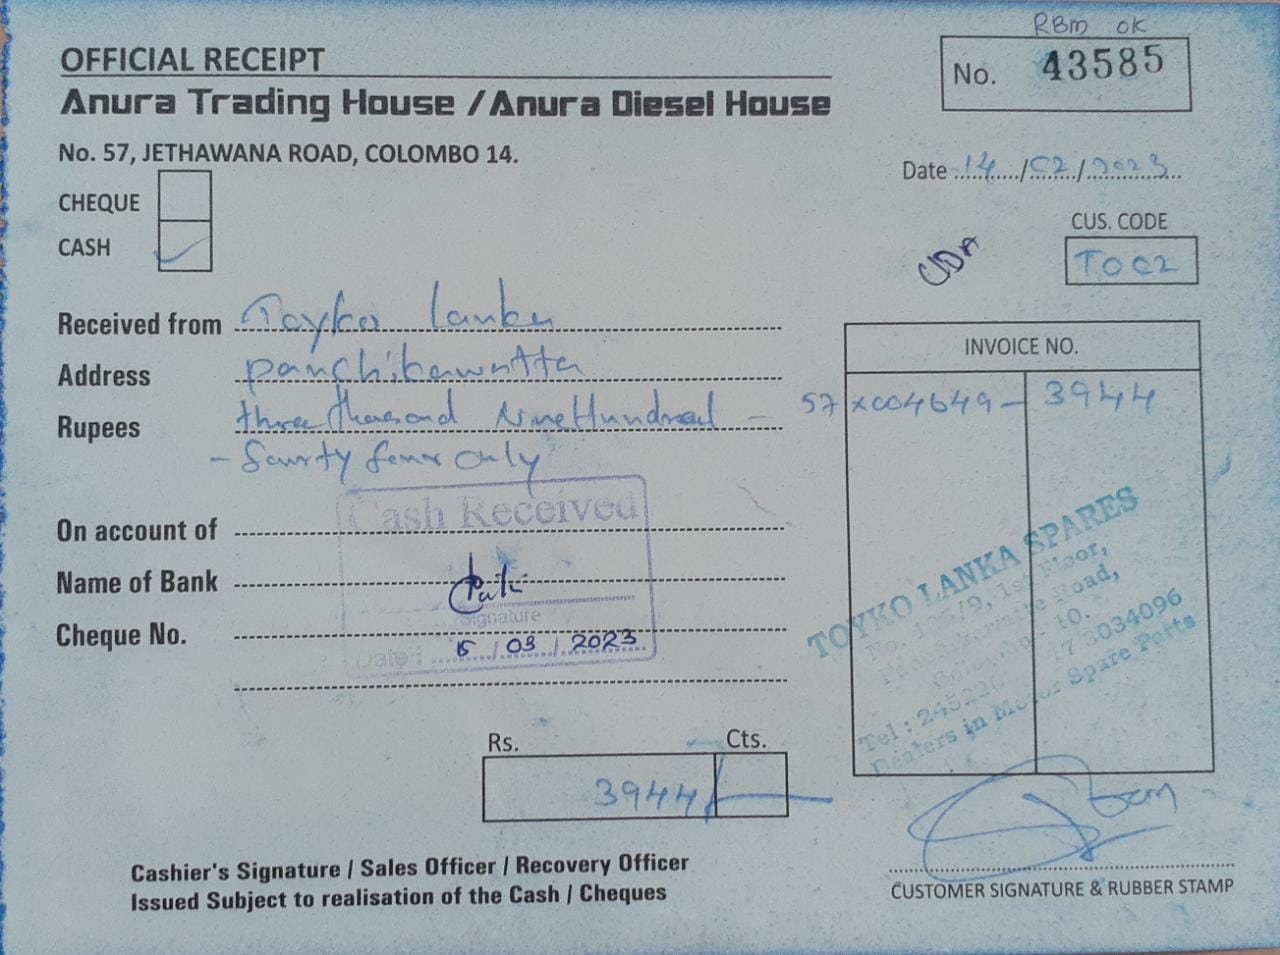 RBM OK
OFFICIAL RECEIPT
No. 43585
Anura Trading House / Anura Diesel House
No. 57, JETHAWANA ROAD, COLOMBO 14.
Date 14/02/2023
CHEQUE
CASH
CUS. CODE
CDA
TOC2
Received from Toyko Lanka
INVOICE NO.
Address Panchikawatta
57 XC04649 - 3944
Rupees three thousand Nine Hundred -
- Fourty four Only
Cash Received
On account of
Name of Bank
Signature
Cheque No.
Date: 15/03/2023
TOYKO LANKA SPARES
1st Floor,
Road,
Tel: 3034096
Dealers in Motor Spare Parts
Rs. Cts.
3944/-
Cashier's Signature / Sales Officer / Recovery Officer
Issued Subject to realisation of the Cash / Cheques
CUSTOMER SIGNATURE & RUBBER STAMP